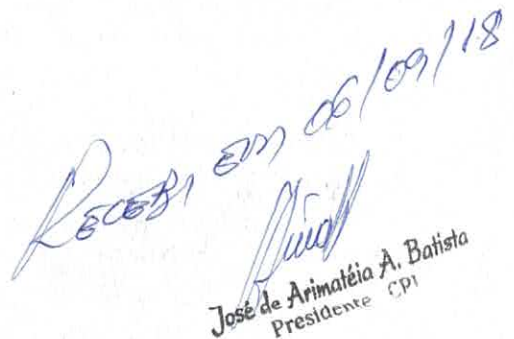 RECEBI EM 06/09/18
José de Arimatéia A. Batista
Presidente CPI